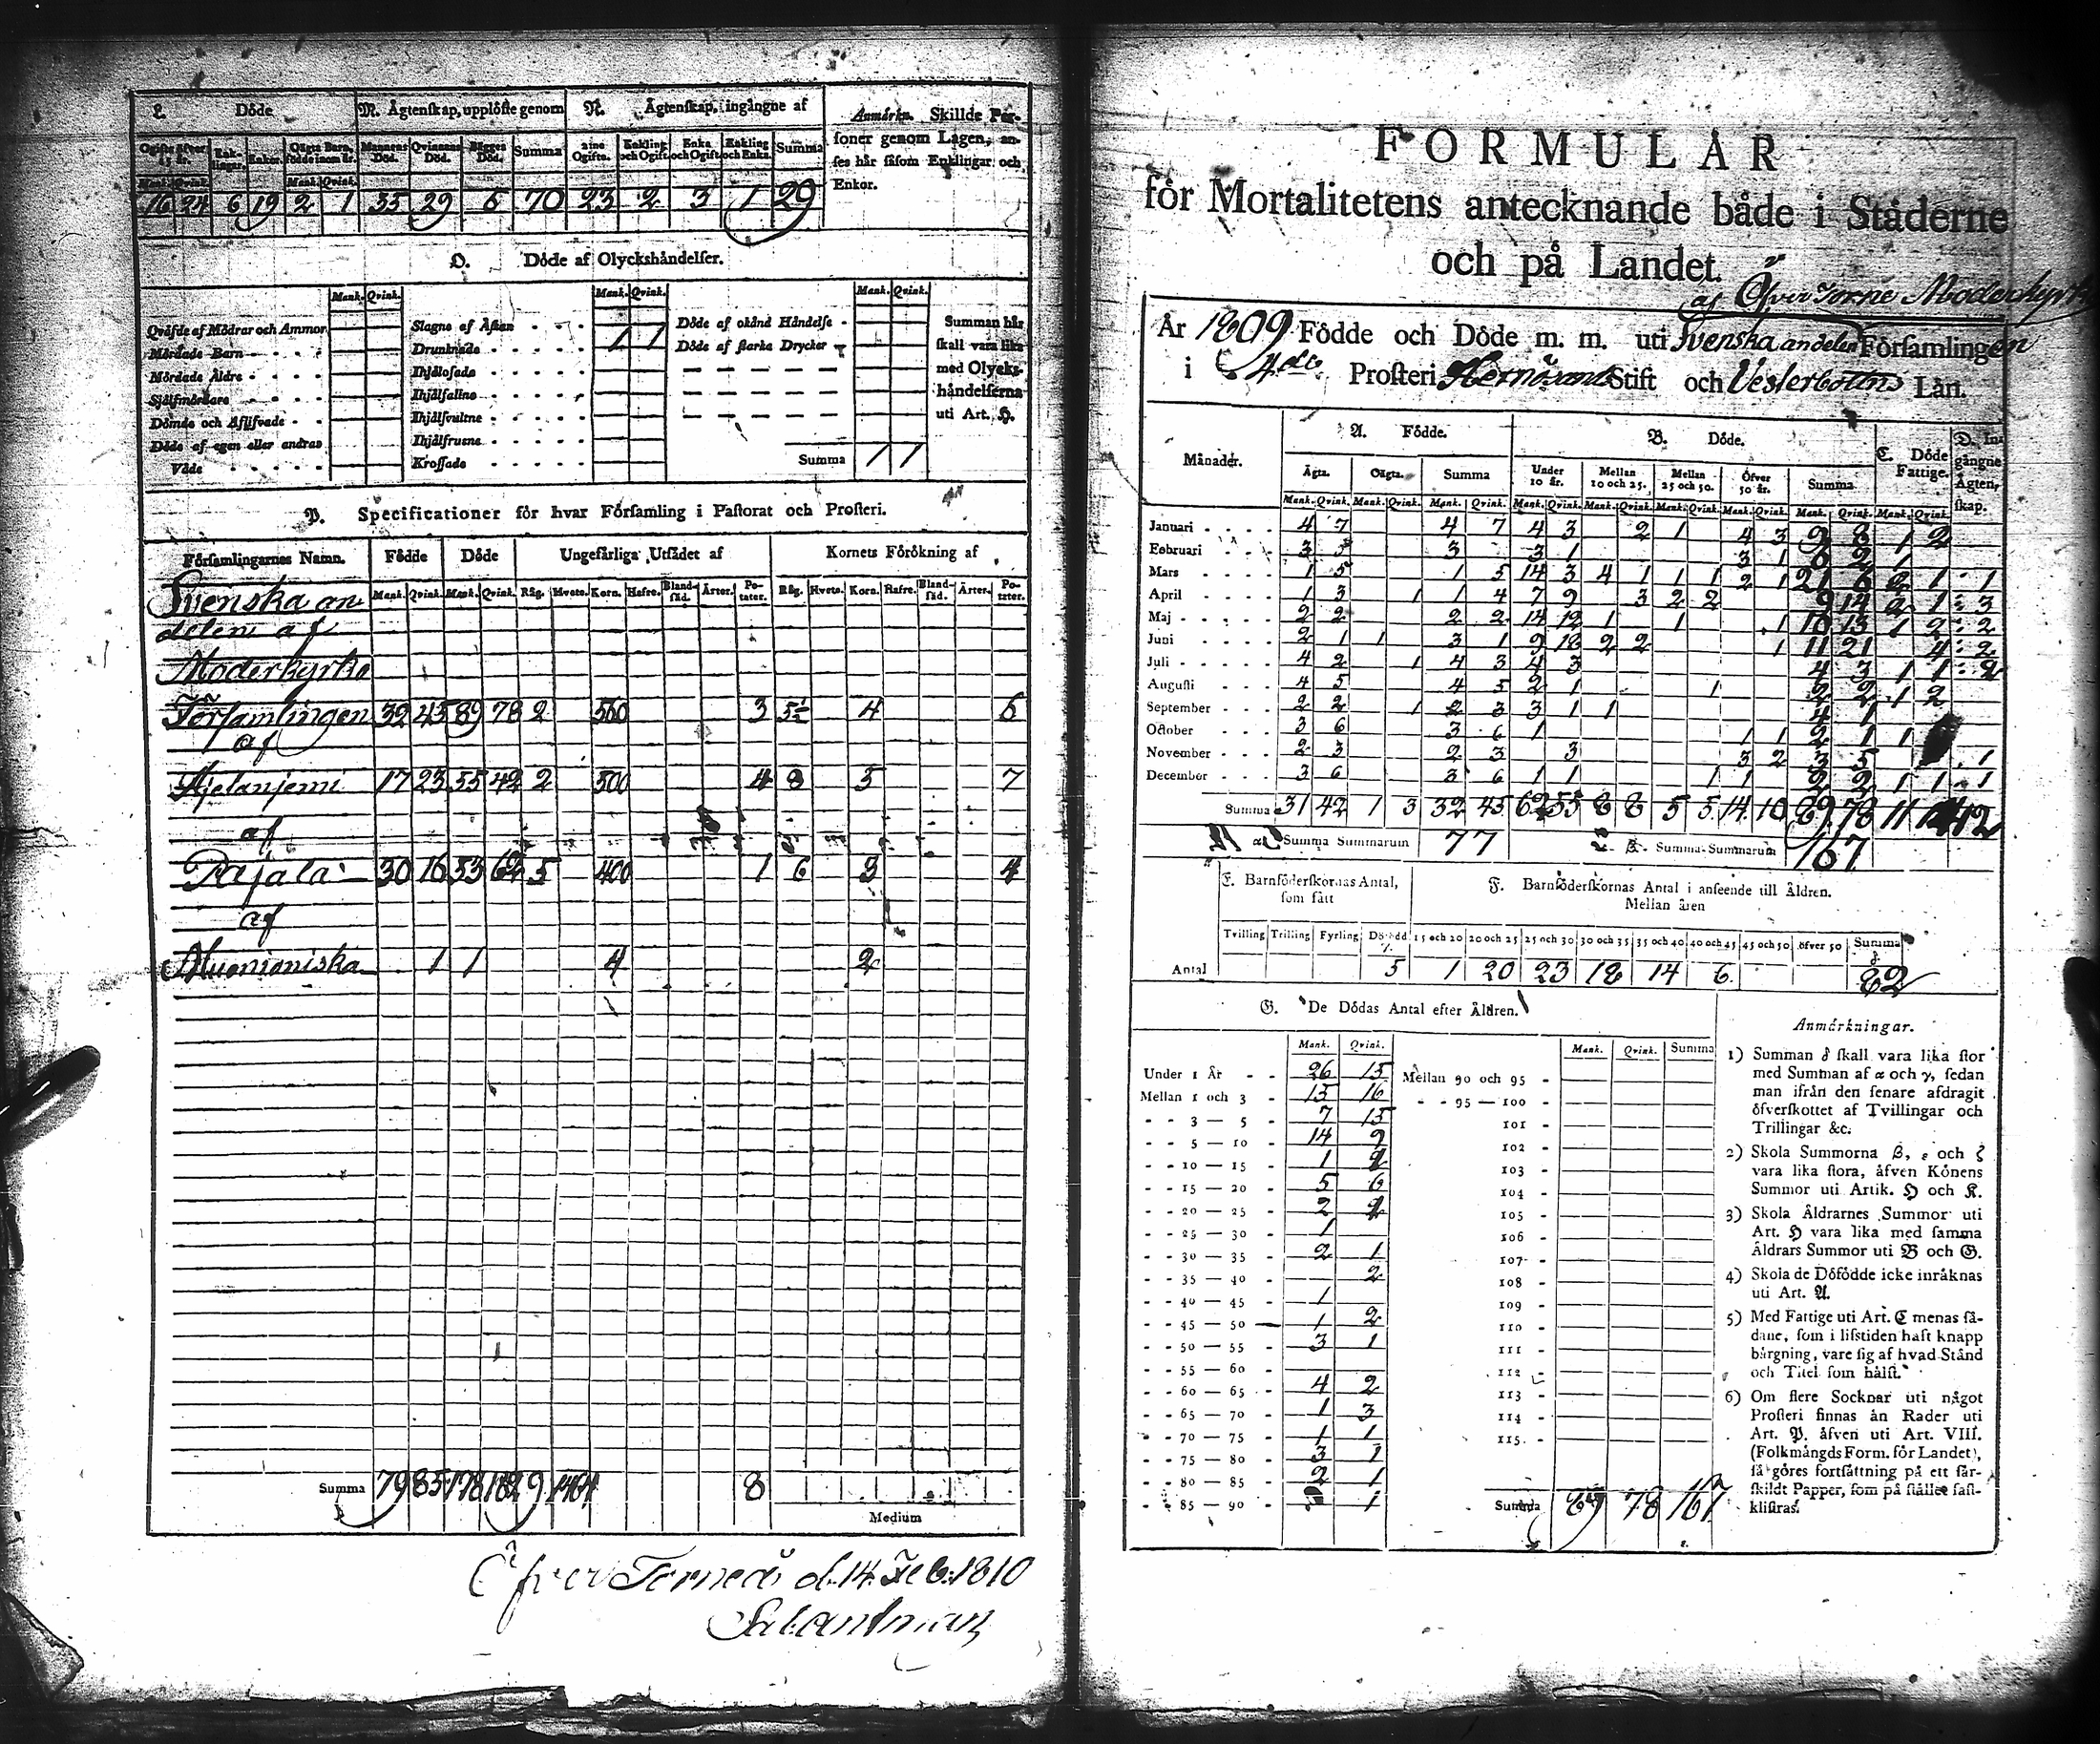 L. Döde
M. Ägtenskap, upplöste genom
N. Ägtenskap, ingångne af
Anmärkn. Skillde Personer
soner genom Lagen, an-
ses här såsom Enklingar och
Enkor.
Mannens Död. Qvinnans Död. Bägges Död. Summa
Enkling och Ogift. Enka och Ogift. Enkling och Enka. Summa
16 24 6 19 2 1 35 29 6 70 23 2 3 1 29
O. Döde af Olyckshändelser.
Mank. Qvink. Mank. Qvink. Mank. Qvink.
Qväfde af Mödrar och Ammor
Mördade Barn
Mördade Äldre
Sjelfmördare
Dömde och Aflifvade
Döde af egen eller andras
Våde
Slagne af Åskan
Drunknade 1 1
Ihjälosade
Ihjälfallne
Ihjälsvultne
Ihjälfrusne
Krossade
Döde af okänd Händelse
Döde af starka Drycker
Summa 1 1
Summan här
skall vara lika
med Olycks-
händelserna
uti Art. H.
P. Specificationer för hvar Församling i Pastorat och Prosteri.
Församlingarnes Namn. Födde Döde Ungefärliga Utsädet af Kornets Förökning af
Mank. Qvink. Mank. Qvink. Råg. Hvete. Korn. Hafre. Bland-säd. Ärter. Po-tater. Råg. Hvete. Korn. Hafre. Bland-säd. Ärter. Po-tater.
Svenska an
delen af
Moderkyrko
Församlingen 32 45 89 78 2 560 3 5½ 4 6
af
Hjetanjemi 17 23 55 42 2 500 4 8 5 7
af
Pajala 30 16 33 62 5 400 1 6 3 4
af
Muonioniska 1 1 4 2
Summa 79 85 178 182 9 1464 8
Medium
Öfver Torneå d. 14. Feb: 1810
FORMULÄR
för Mortalitetens antecknande både i Städerne
och på Landet.
af Öfver Torne Moderkyrk
År 1809 Födde och Döde m. m. uti Svenska andelen Församlingen
i 4de Prosteri Hernösands Stift och Vesterbottns Län.
Månader. A. Födde. B. Döde. C. Döde Fattige. D. In-gångne Ägten-skap.
Ägta. Oägta. Summa Under 10 år. Mellan 10 och 25. Mellan 25 och 50. Öfver 50 år. Summa
Mank. Qvink. Mank. Qvink. Mank. Qvink. Mank. Qvink. Mank. Qvink. Mank. Qvink. Mank. Qvink. Mank. Qvink. Mank. Qvink.
Januari 4 7 4 7 4 3 2 1 4 3 9 8 1 2
Februari 3 3 3 1 3 1 6 2 1
Mars 1 5 1 5 14 3 4 1 1 1 2 1 21 6 2 1 1
April 1 3 1 1 4 7 9 3 2 2 9 14 2 1 3
Maj 2 2 2 2 14 12 1 1 1 16 13 1 2 2
Juni 2 1 1 3 1 9 18 2 2 1 11 21 4 2
Juli 4 2 1 4 3 4 3 4 3 1 1 2
Augusti 4 5 4 5 2 1 1 2 2 1 2
September 2 2 1 2 3 3 1 1 4 1
October 3 6 3 6 1 1 1 2 1 1
November 2 3 2 3 3 3 2 3 5 1
December 3 6 3 6 1 1 1 1 2 2 1 1 1
Summa 31 42 1 3 32 45 62 55 8 8 5 5 14 10 89 78 11 12
Summa Summarum 77 Summa Summarum 167
E. Barnföderskornas Antal, som fått
F. Barnföderskornas Antal i anseende till Åldren.
Mellan åren
Tvilling Trilling Fyrling Dödfödd 15 och 20 20 och 25 25 och 30 30 och 35 35 och 40 40 och 45 45 och 50 öfver 50 Summa
Antal 5 1 20 23 18 14 6 82
G. De Dödas Antal efter Åldren.
Mank. Qvink. Mank. Qvink. Summa
Under 1 År 26 15
Mellan 1 och 3 15 16
3 — 5 7 15
5 — 10 14 9
10 — 15 1 2
15 — 20 5 6
20 — 25 2
25 — 30 1
30 — 35 2 1
35 — 40 2
40 — 45 1
45 — 50 1 2
50 — 55 3 1
55 — 60
60 — 65 4 2
65 — 70 1 3
70 — 75 1 1
75 — 80 3 1
80 — 85 2 1
85 — 90 1
Mellan 90 och 95
95 — 100
101
102
103
104
105
106
107
108
109
110
111
112
113
114
115
Summa 89 78 167
Anmärkningar.
1) Summan δ skall vara lika stor
med Summan af α och γ, sedan
man ifrån den senare afdragit
öfverskottet af Tvillingar och
Trillingar &c.
2) Skola Summorna β, ε och ζ
vara lika stora, äfven Könens
Summor uti Artik. H och K.
3) Skola Åldrarnes Summor uti
Art. H vara lika med samma
Åldrars Summor uti B och G.
4) Skola de Döfödde icke inräknas
uti Art. A.
5) Med Fattige uti Art. C menas så-
dane, som i lifstiden haft knapp
bärgning, vare sig af hvad Stånd
och Titel som hälst.
6) Om flere Socknar uti något
Prosteri finnas än Rader uti
Art. P. äfven uti Art. VIII.
(Folkmängds Form. för Landet),
så göres fortsättning på ett sär-
skildt Papper, som på stället fast-
klistras.